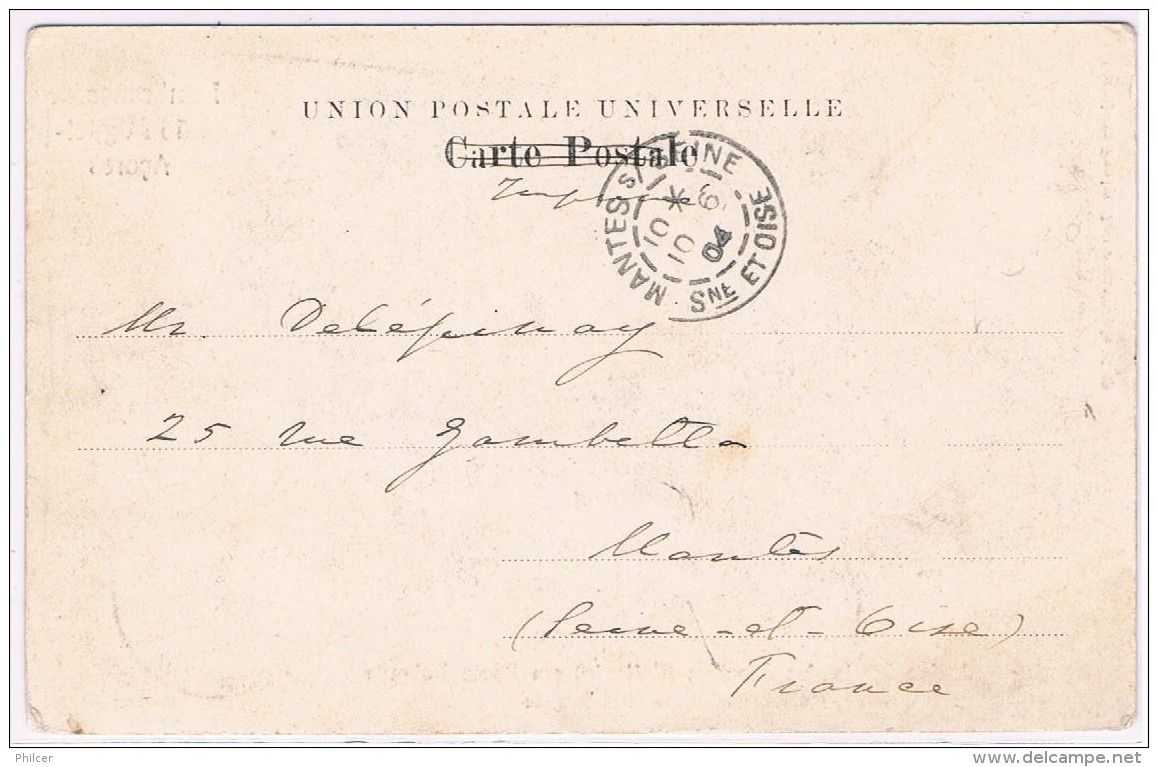 UNION POSTALE UNIVERSELLE
Carte Postale
MANTES S/ SEINE
10 * 6
10
04
SNE ET OISE
Mr Delépinay
25 rue Gambetta
Mantes
(Seine-et-Oise)
France
Philcer
delcampe.net